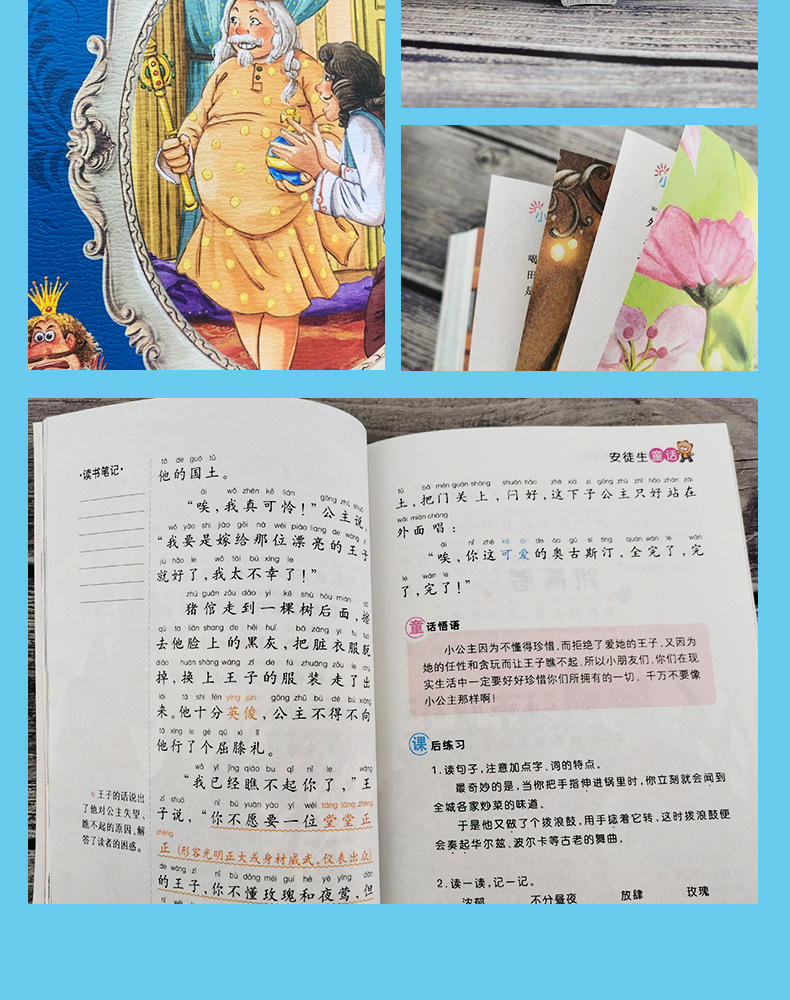 小
小
喝
田
是
外
tā de guó tǔ
他的国土。
·读书笔记·
āi wǒ zhēn kě lián gōng zhǔ shuō
“唉，我真可怜！”公主说，
wǒ yào shi jià gěi nà wèi piào liang de wáng zǐ
“我要是嫁给那位漂亮的王子
jiù hǎo le wǒ tài bú xìng le
就好了，我太不幸了！”
zhū guān zǒu dào yì kē shù hòu miàn cā
猪倌走到一棵树后面，擦
qù tā liǎn shang de hēi huī bǎ zāng yī fu tuō
去他脸上的黑灰，把脏衣服脱
diào huàn shàng wáng zǐ de fú zhuāng zǒu le chū
掉，换上王子的服装走了出
lái tā shí fēn yīng jùn gōng zhǔ bù dé bú xiàng
来。他十分英俊，公主不得不向
tā xíng le gè qū xī lǐ
他行了个屈膝礼。
wǒ yǐ jīng qiáo bu qǐ nǐ le wáng
“我已经瞧不起你了，”王
zǐ shuō nǐ bú yuàn yào yí wèi táng táng zhèng
子说，“你不愿要一位堂堂正
zhèng
正（形容光明正大或身材威武，仪表出众）
de wáng zǐ nǐ bù dǒng méi gui hé yè yīng dàn
的王子，你不懂玫瑰和夜莺，但
王子的话说出
了他对公主失望、
瞧不起的原因，解
答了读者的困惑。
安徒生童话
tǔ bǎ mén guān shàng shuān hǎo zhè xià zi gōng zhǔ zhǐ hǎo zhàn zài
土，把门关上，闩好，这下子公主只好站在
wài miàn chàng
外面唱：
āi nǐ zhè kě ài de ào gǔ sī tīng quán wán le wán
“唉，你这可爱的奥古斯汀，全完了，完
le wán le
了，完了！”
童话悟语
小公主因为不懂得珍惜，而拒绝了爱她的王子，又因为
她的任性和贪玩而让王子瞧不起，所以小朋友们，你们在现
实生活中一定要好好珍惜你们所拥有的一切。千万不要像
小公主那样啊！
课后练习
1.读句子，注意加点字、词的特点。
最奇妙的是，当你把手指伸进锅里时，你立刻就会闻到
全城各家炒菜的味道。
于是他又做了个拨浪鼓，用手捻着它转，这时拨浪鼓便
会奏起华尔兹、波尔卡等古老的舞曲。
2.读一读，记一记。
浓郁 不分昼夜 放肆 玫瑰